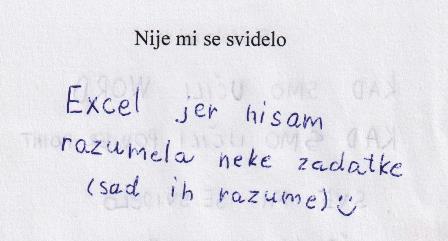 Nije mi se svidelo
Excel jer nisam
razumela neke zadatke
(sad ih razume)